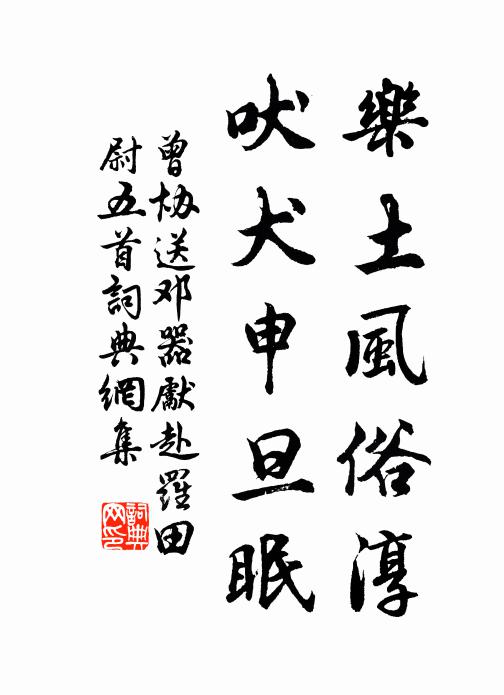 樂土風俗淳
吠犬申旦眠
曾协送邓器獻赴羅田
尉五首詞典網集
詞典网印